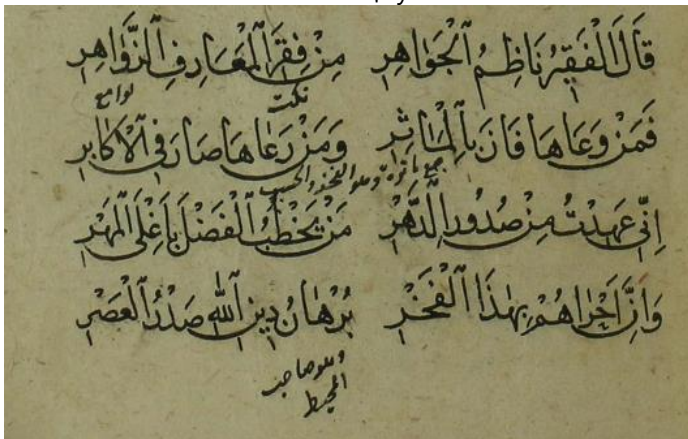 قَالَ الْفَقِيرُ نَاظِمُ الْجَوَاهِرِ مِنْ فِقَرِ الْمَعَارِفِ الزَّوَاهِرِ
نكت لوامع
فَمَنْ وَعَاهَا فَازَ بِالْمَاٰثِرِ وَمَنْ رَعَاهَا صَارَ فِي الْاَكَابِرِ
جمع مأثرة وهو الفخر والحسب
اِنِّي عَهِدْتُ مِنْ صُدُورِ الدَّهْرِ مَنْ يَخْطُبُ الْفَضْلَ بِاَغْلَى الْمَهْرِ
وَاِنَّ اَحْرَاهُمْ بِهٰذَا الْفَخْرِ بُرْهَانُ دِينِ اللّٰهِ صَدْرُ الْعَصْرِ
وهو صاحب
المحيط